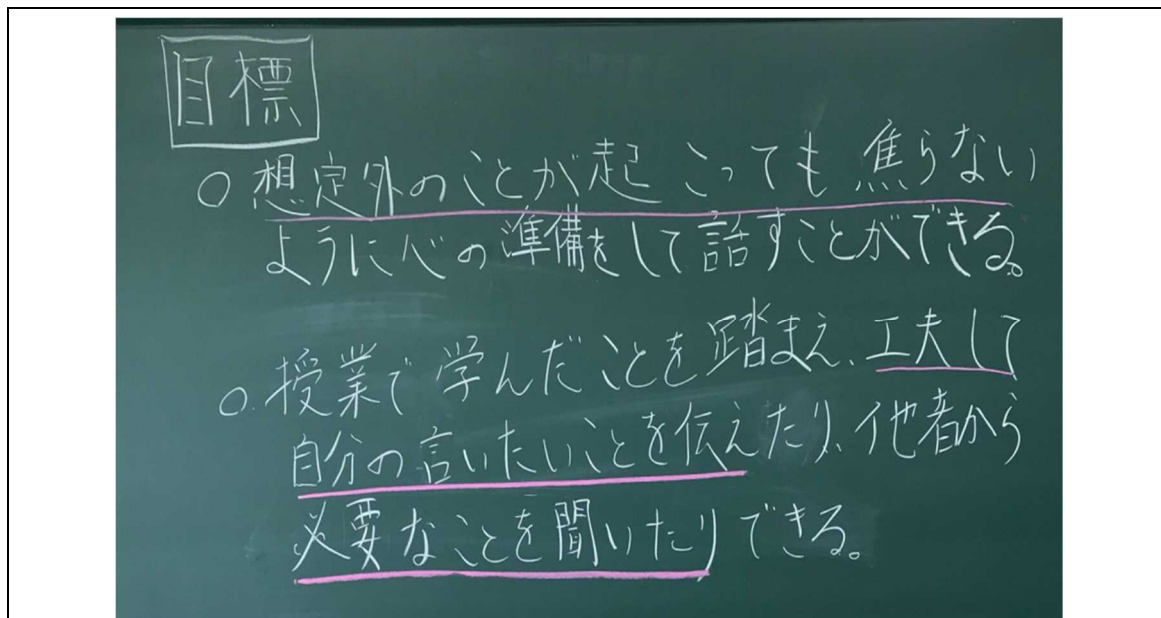 目標
○想定外のことが起こっても焦らない
ように心の準備をして話すことができる。
○授業で学んだことを踏まえ、工夫して
自分の言いたいことを伝えたり、他者から
必要なことを聞いたりできる。